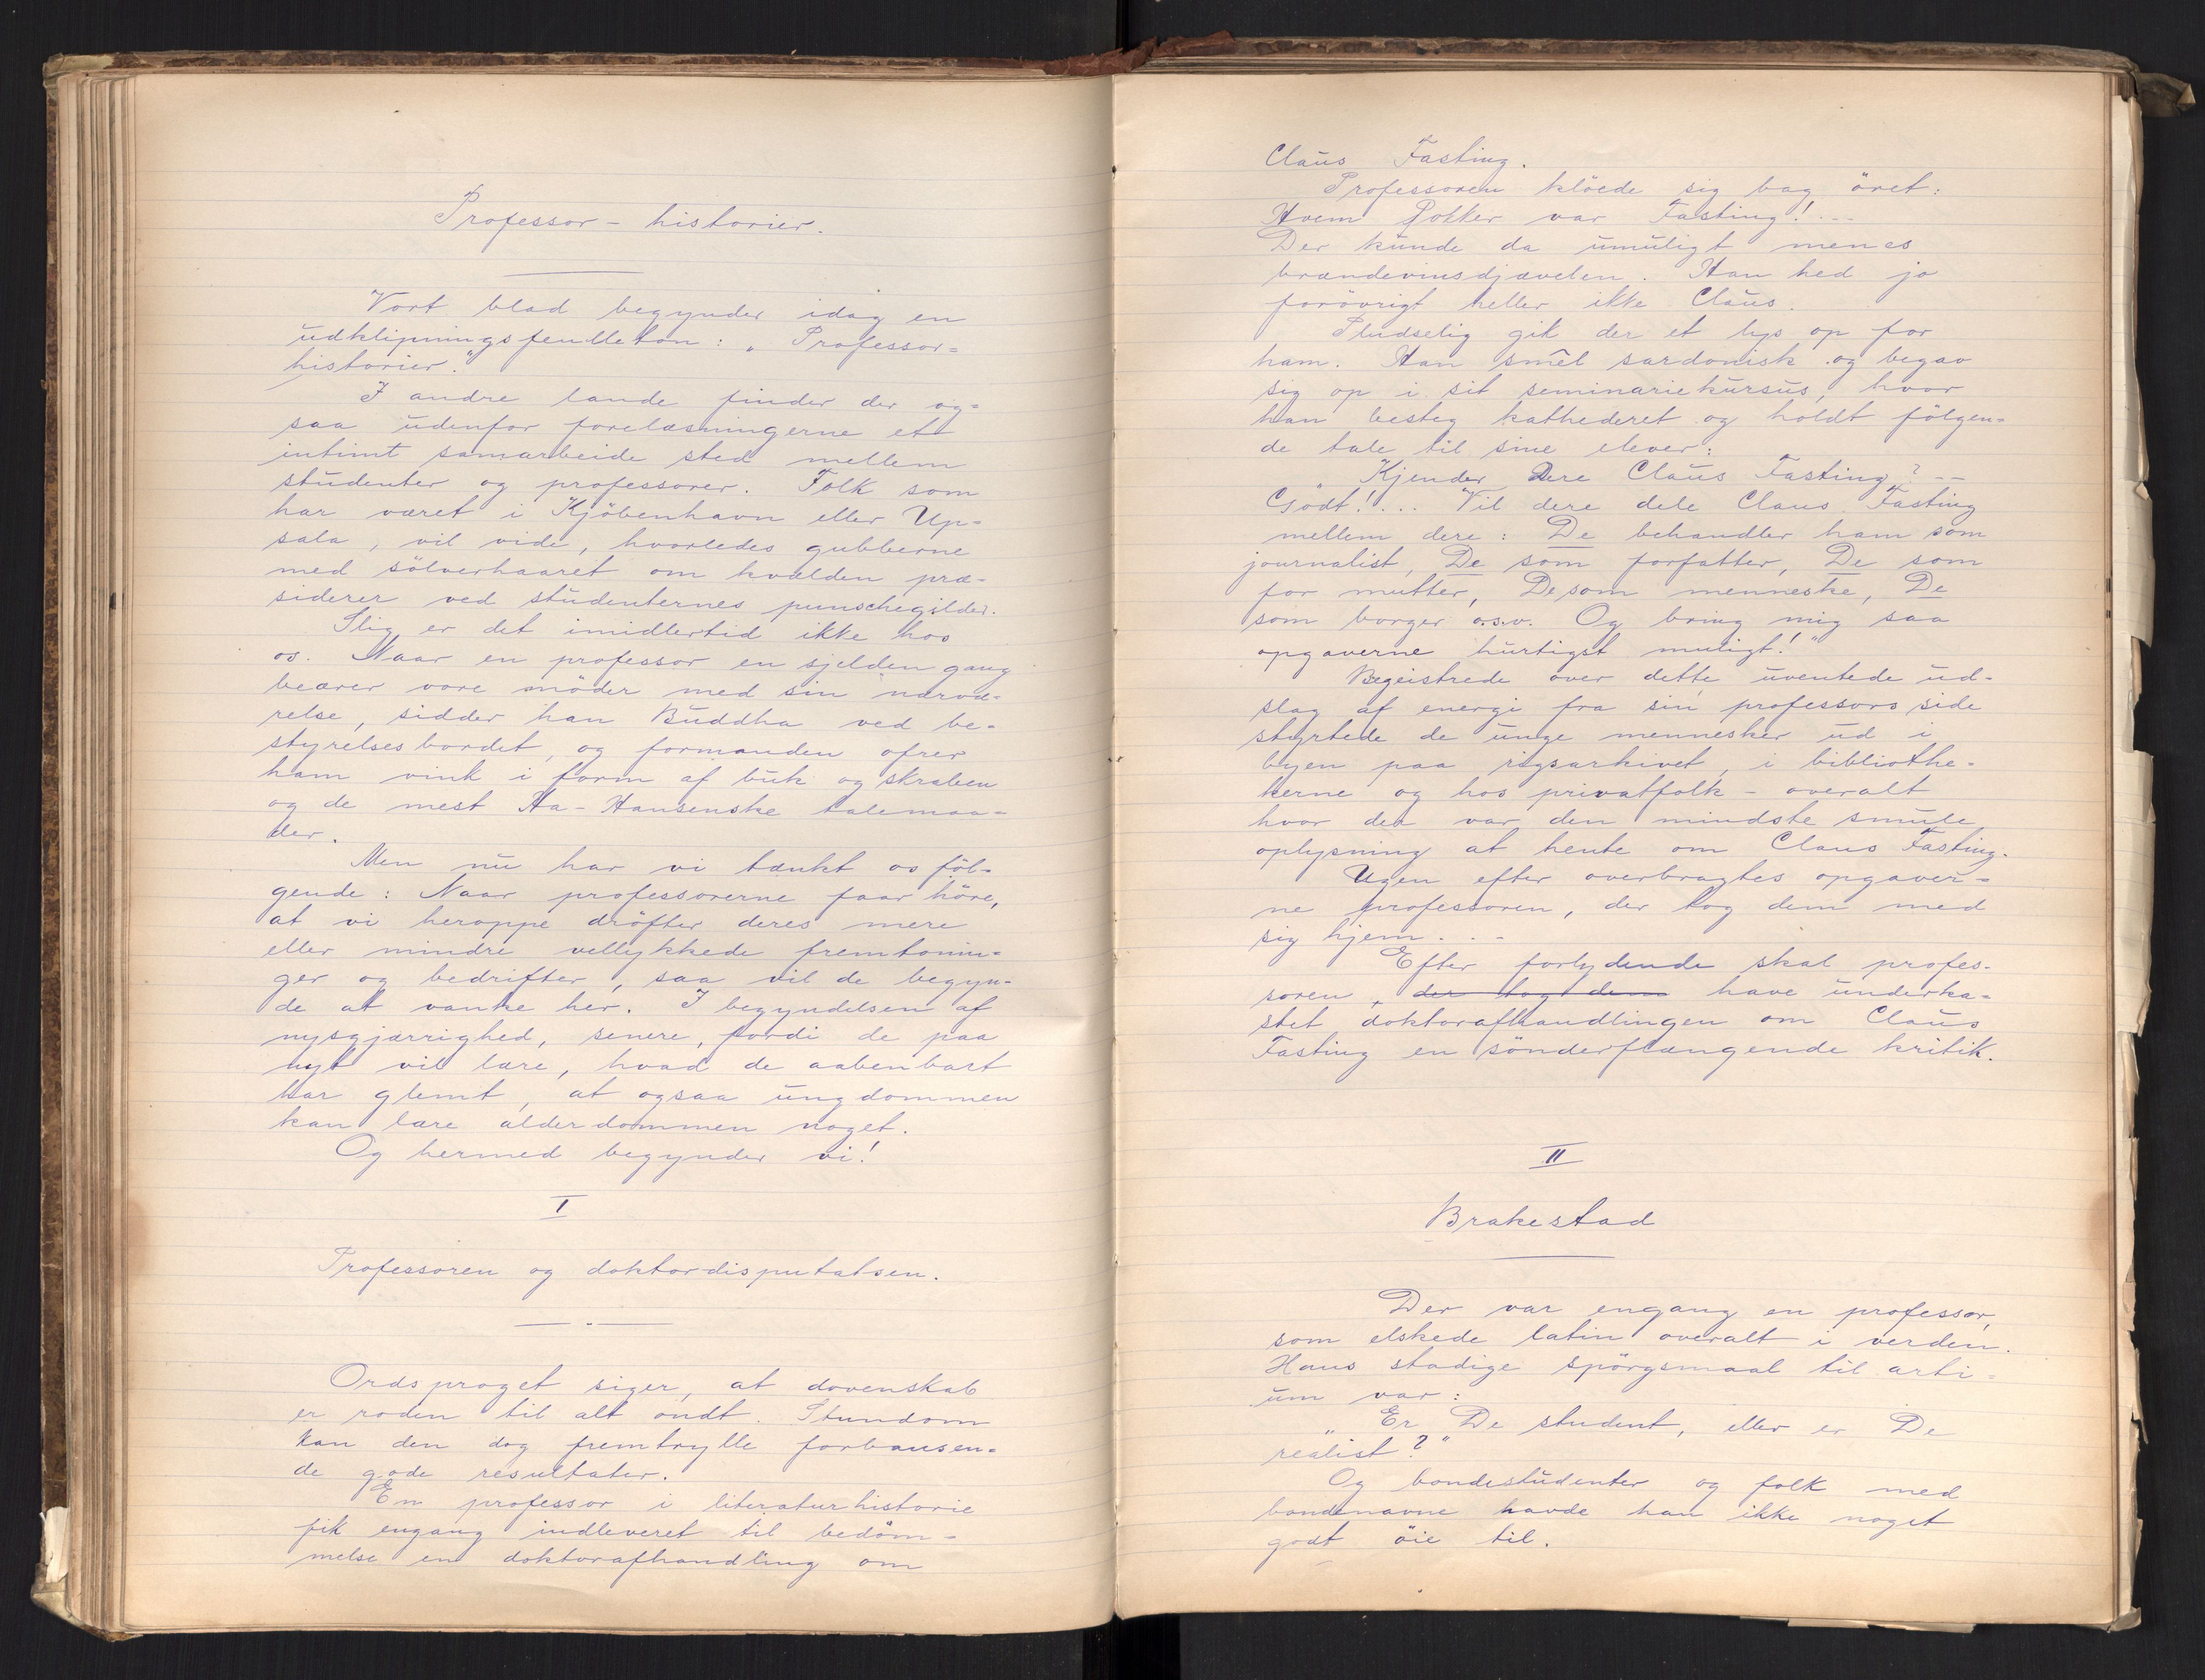 Professor-historier.
Vort blad begynder idag en
udklipningsfeuilleton: "Professor=
historier."
I andre lande finder der og=
saa udenfor forelæsningerne et
intimt samarbeide sted mellem
studenter og professorer. Folk som
har været i Kjöbenhavn eller Up=
sala, vil vide, hvorledes gubberne
med sölverhaaret om kvælden præ-
siderer ved studenternes punschegilder.
Slig er det imidlertid ikke hos
os. Naar en professor en sjelden gang
beærer vore möder med sin nærvæ-
relse, sidder han Buddha ved be-
styrelsesbordet, og formanden ofrer
ham vink i form af buk og skraben
og de mest Ha-Hansenske talemaa=
der.
Men nu har vi tænkt os föl-
gende: Naar professorerne faar höre,
at vi heroppe dröfter deres mere
eller mindre vellykkede fremtonin=
ger og bedrifter, saa vil de begyn-
de at vanke her. I begyndelsen af
nysgjærrighed, senere, fordi de paa
nyt vil lære, hvad de aabenbart
har glemt, at ogsaa ungdommen
kan lære alderdommen noget.
Og hermed begynder vi!
I
Professoren og doktordisputatsen.
Ordsproget siger, at dovenskab
er roden til alt ondt. Stundom
kan den dog fremtrylle forbausen=
de gode resultater.
En professor i literaturhistorie
fik engang indleveret til bedöm=
melse en doktorafhandling om
Claus Fasting.
Professoren klöede sig bag öret:
Hvem Pokker var Fasting!...
Der kunde da umuligt menes
brændevinsdjævelen. Han hed jo
forövrigt heller ikke Claus.
Pludselig gik der et lys op for
ham. Han smil sardonisk og begav
sig op i sit seminariekursus, hvor
han besteg kathederet og holdt fölgen=
de tale til sine elever:
"Kjender Dere Claus Fasting? --
Godt!... Vil dere dele Claus Fasting
mellem dere: De behandler ham som
journalist, De som forfatter, De som
for mutter, De som menneske, De
som borger o.s.v. Og bring mig saa
opgaverne hurtigst muligt!"
Begeistrede over dette uventede ud-
slag af energi fra sin professors side
styrtede de unge mennesker ud i
byen paa rigsarkivet, i bibliothe-
kerne og hos privatfolk - overalt
hvor der var den mindste smule
oplysning at hente om Claus Fasting.
Ugen efter overbragtes opgaver=
ne professoren, der tog dem med
sig hjem...
Efter forlydende skal profes-
soren, der tog dem have underka=
stet doktorafhandlingen om Claus
Fasting en sönderflængende kritik.
II
Brakestad
Der var engang en professor,
som elskede latin overalt i verden.
Hans stadige spörgsmaal til arti=
um var:
"Er De student, eller er De
realist?"
Og bondestudenter og folk med
bondenavne havde han ikke noget
godt öie til.